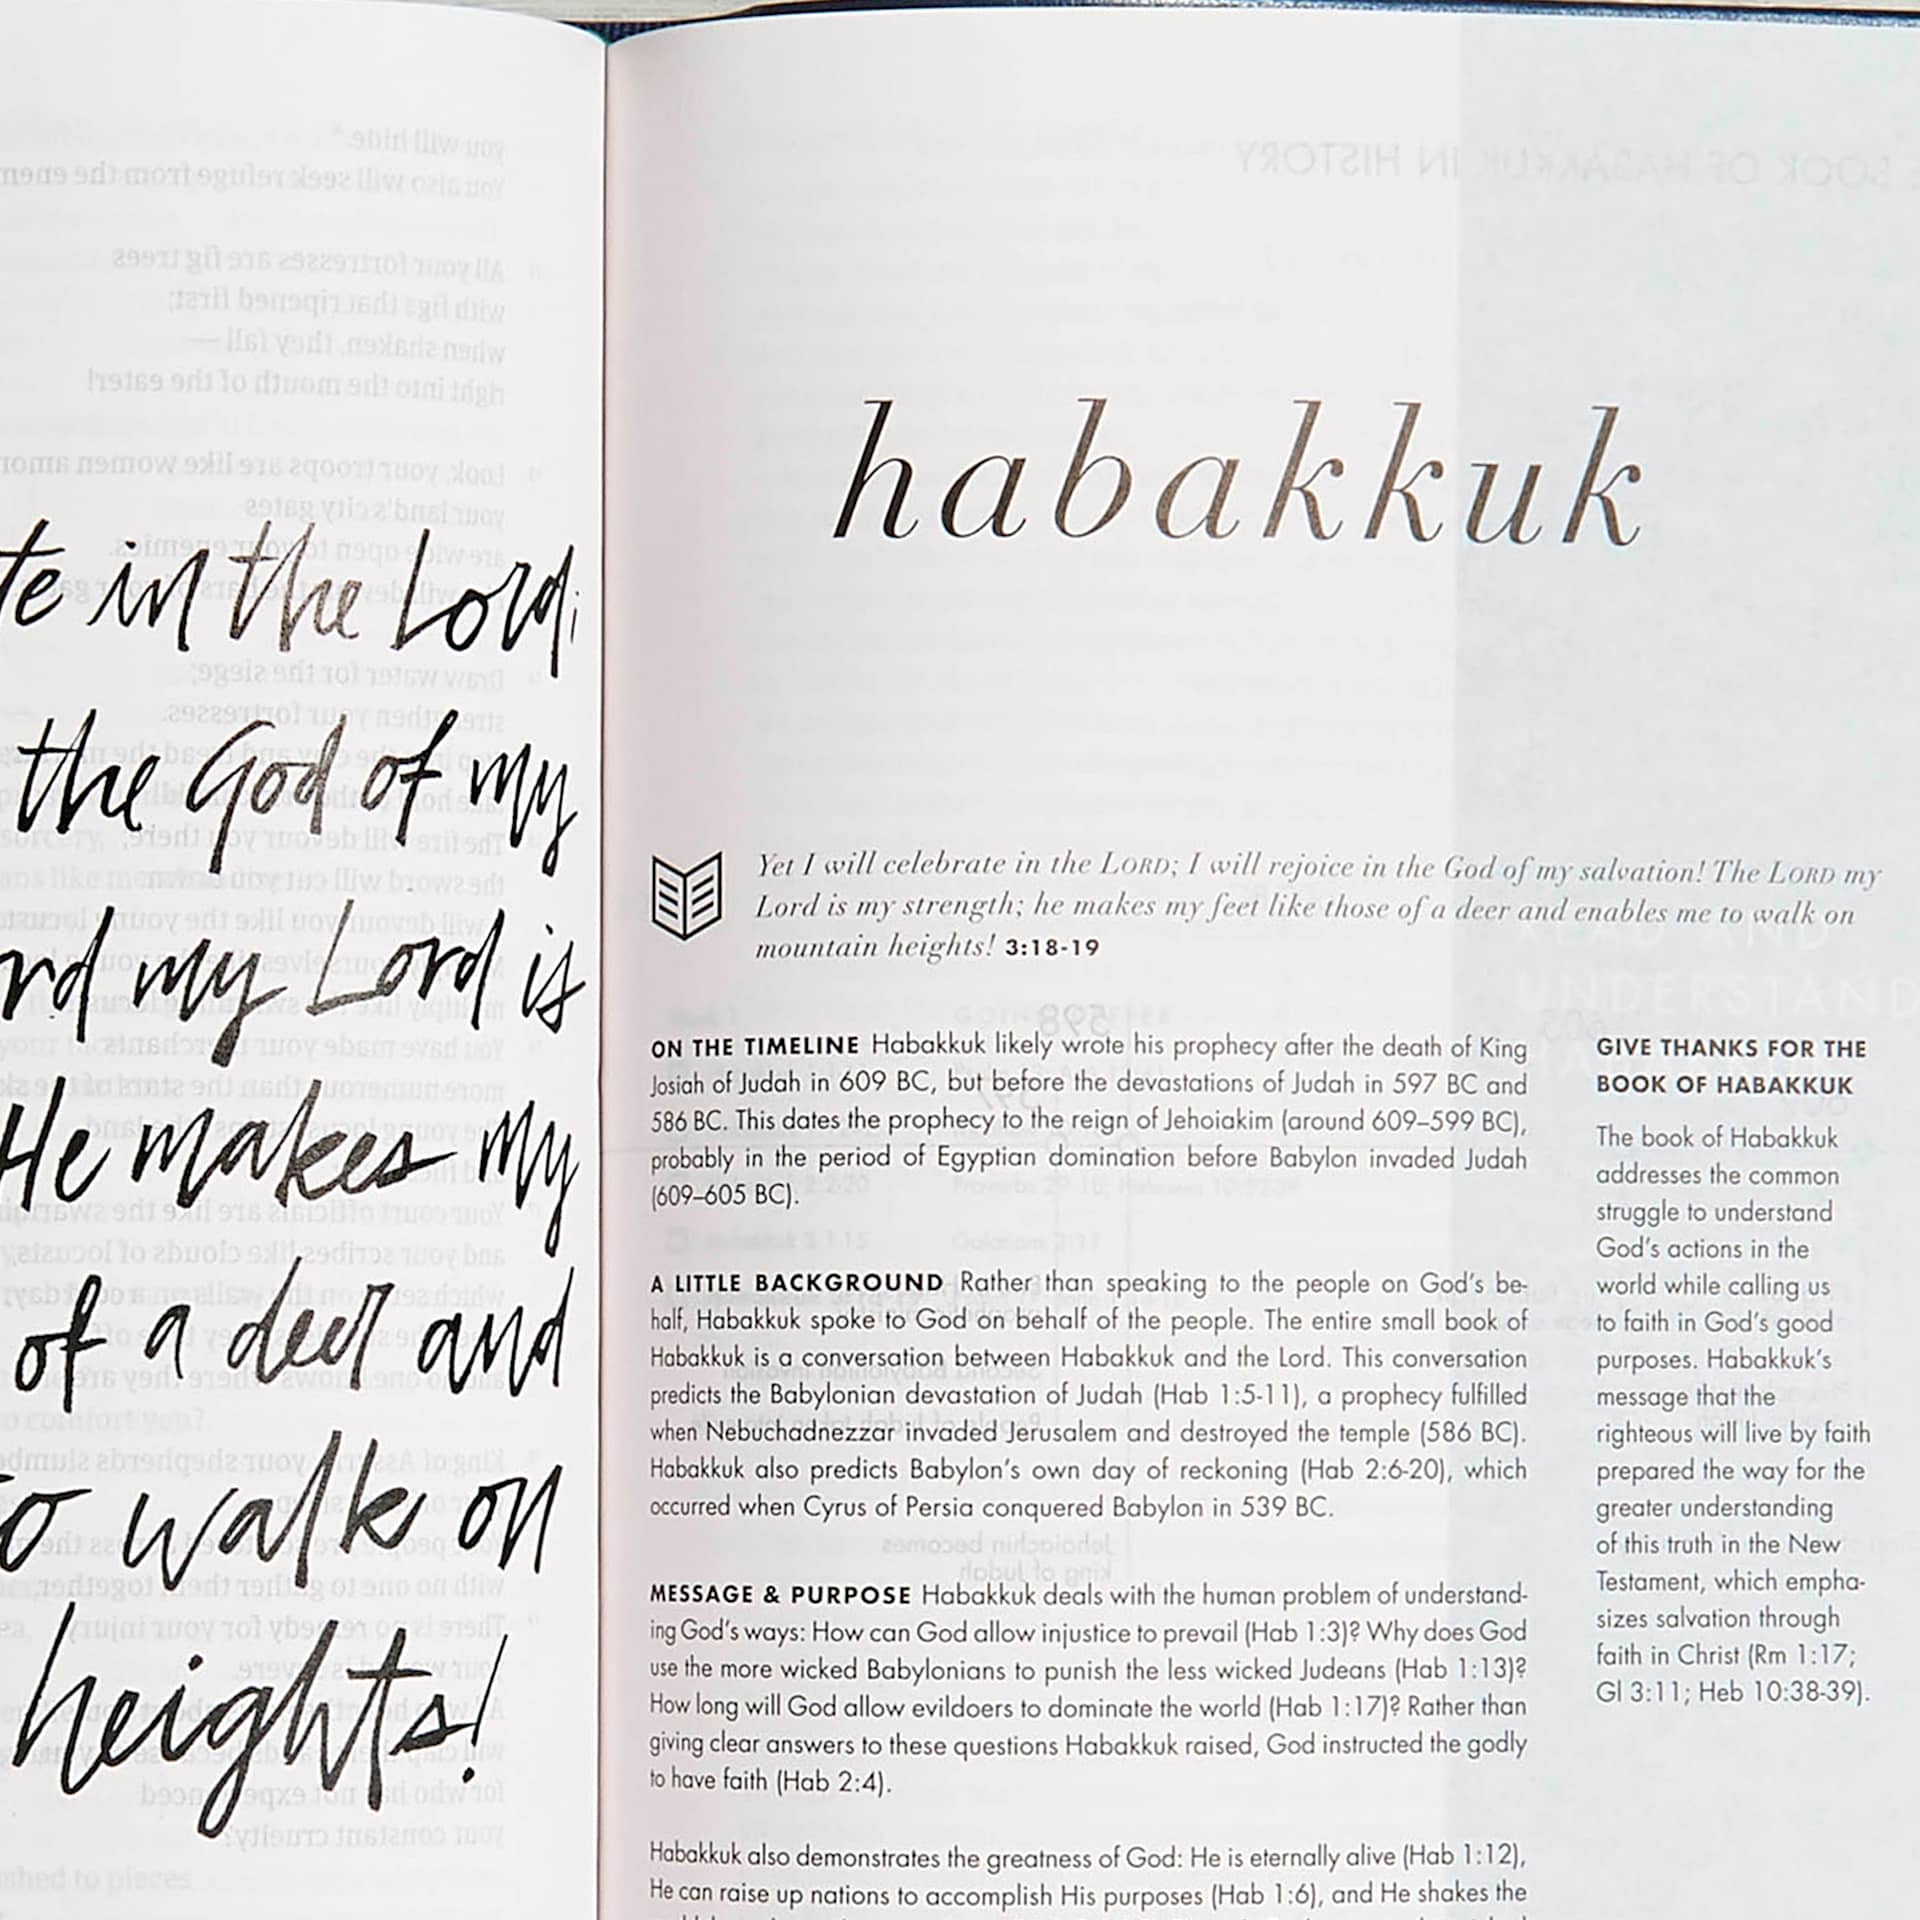 in the Lord;
the God of my
my Lord is
He makes my
of a deer and
walk on
heights!
habakkuk
Yet I will celebrate in the LORD; I will rejoice in the God of my salvation! The LORD my
Lord is my strength; he makes my feet like those of a deer and enables me to walk on
mountain heights! 3:18-19
ON THE TIMELINE Habakkuk likely wrote his prophecy after the death of King
Josiah of Judah in 609 BC, but before the devastations of Judah in 597 BC and
586 BC. This dates the prophecy to the reign of Jehoiakim (around 609–599 BC),
probably in the period of Egyptian domination before Babylon invaded Judah
(609–605 BC).
A LITTLE BACKGROUND Rather than speaking to the people on God's be-
half, Habakkuk spoke to God on behalf of the people. The entire small book of
Habakkuk is a conversation between Habakkuk and the Lord. This conversation
predicts the Babylonian devastation of Judah (Hab 1:5-11), a prophecy fulfilled
when Nebuchadnezzar invaded Jerusalem and destroyed the temple (586 BC).
Habakkuk also predicts Babylon's own day of reckoning (Hab 2:6-20), which
occurred when Cyrus of Persia conquered Babylon in 539 BC.
MESSAGE & PURPOSE Habakkuk deals with the human problem of understand-
ing God's ways: How can God allow injustice to prevail (Hab 1:3)? Why does God
use the more wicked Babylonians to punish the less wicked Judeans (Hab 1:13)?
How long will God allow evildoers to dominate the world (Hab 1:17)? Rather than
giving clear answers to these questions Habakkuk raised, God instructed the godly
to have faith (Hab 2:4).
Habakkuk also demonstrates the greatness of God: He is eternally alive (Hab 1:12),
He can raise up nations to accomplish His purposes (Hab 1:6), and He shakes the
GIVE THANKS FOR THE
BOOK OF HABAKKUK
The book of Habakkuk
addresses the common
struggle to understand
God's actions in the
world while calling us
to faith in God's good
purposes. Habakkuk's
message that the
righteous will live by faith
prepared the way for the
greater understanding
of this truth in the New
Testament, which empha-
sizes salvation through
faith in Christ (Rm 1:17;
Gl 3:11; Heb 10:38-39).